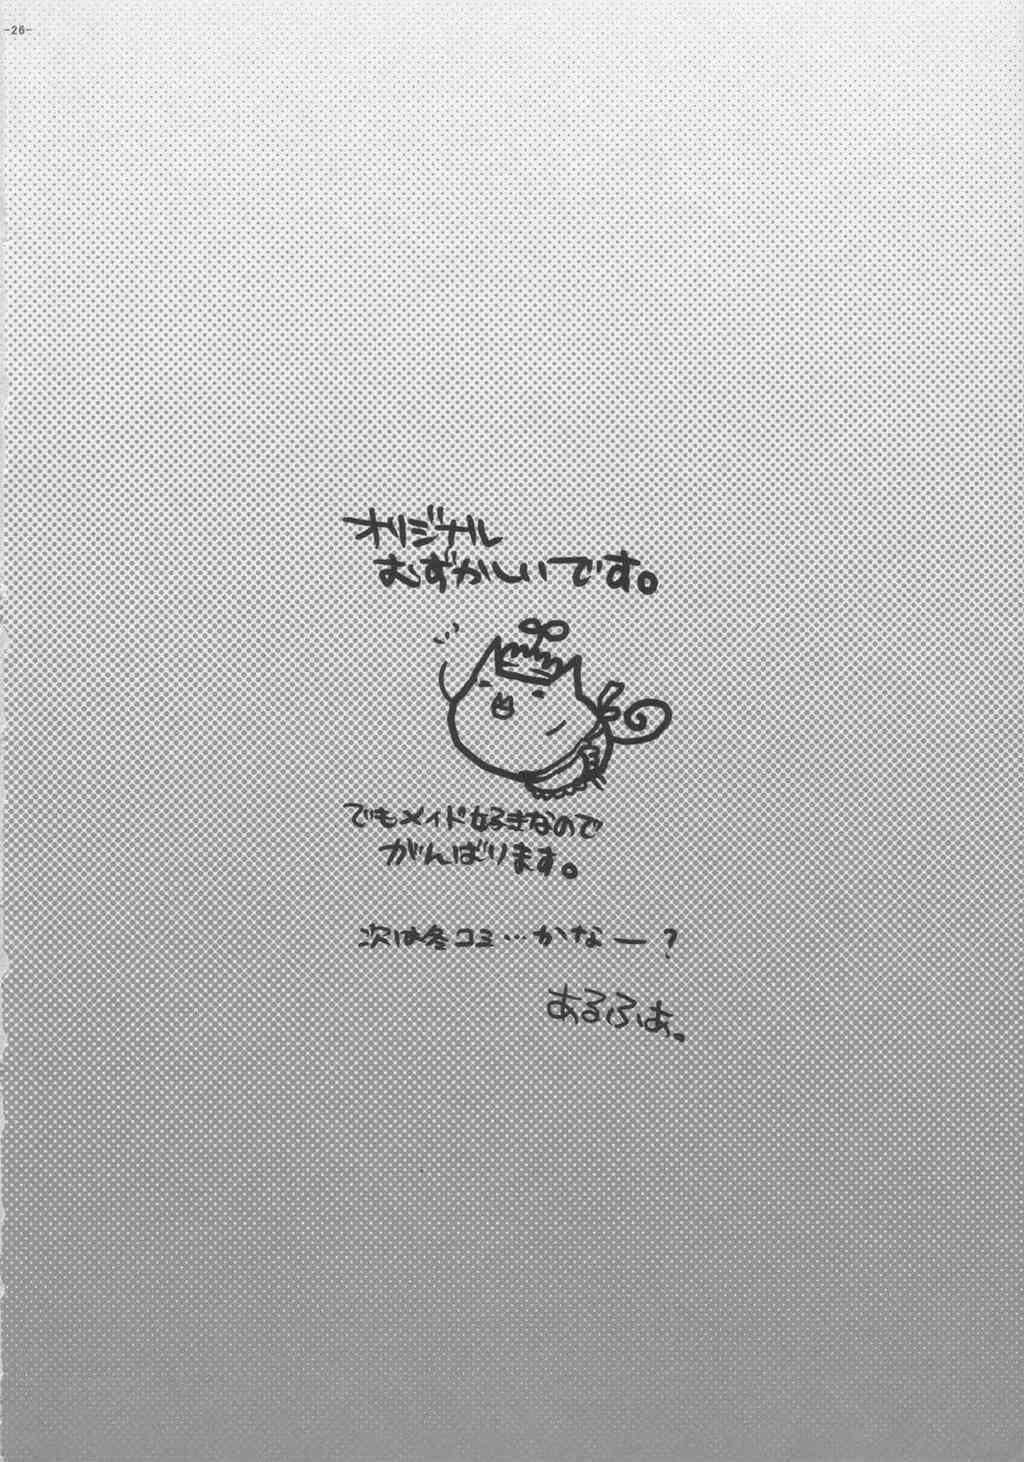 -26-
オリジナル
むずかしいです。
でもメイド好きなので
がんばります。
次は冬コミ…かなー?
あるふぁ。